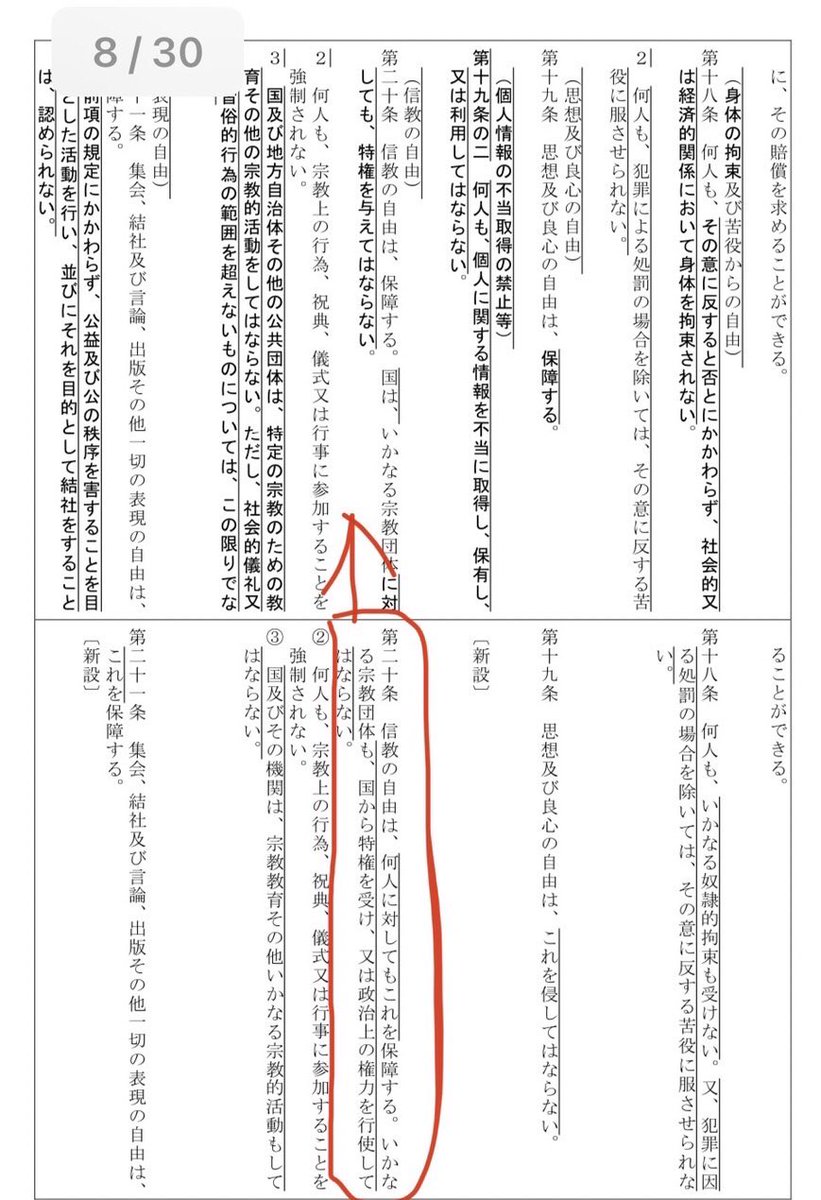 8 / 30
に、その賠償を求めることができる。
(身体の拘束及び苦役からの自由)
第十八条 何人も、その意に反すると否とにかかわらず、社会的又
は経済的関係において身体を拘束されない。
2 何人も、犯罪による処罰の場合を除いては、その意に反する苦
役に服させられない。
(思想及び良心の自由)
第十九条 思想及び良心の自由は、保障する。
(個人情報の不当取得の禁止等)
第十九条の二 何人も、個人に関する情報を不当に取得し、保有し、
又は利用してはならない。
(信教の自由)
第二十条 信教の自由は、保障する。国は、いかなる宗教団体に対
しても、特権を与えてはならない。
2 何人も、宗教上の行為、祝典、儀式又は行事に参加することを
強制されない。
3 国及び地方自治体その他の公共団体は、特定の宗教のための教
育その他の宗教的活動をしてはならない。ただし、社会的儀礼又
習俗的行為の範囲を超えないものについては、この限りでな
表現の自由)
十一条 集会、結社及び言論、出版その他一切の表現の自由は、
障する。
前項の規定にかかわらず、公益及び公の秩序を害することを目
とした活動を行い、並びにそれを目的として結社をすること
は、認められない。
ることができる。
第十八条 何人も、いかなる奴隷的拘束も受けない。又、犯罪に因
る処罰の場合を除いては、その意に反する苦役に服させられな
い。
第十九条 思想及び良心の自由は、これを侵してはならない。
〔新設〕
第二十条 信教の自由は、何人に対してもこれを保障する。いかな
る宗教団体も、国から特権を受け、又は政治上の権力を行使して
はならない。
② 何人も、宗教上の行為、祝典、儀式又は行事に参加することを
強制されない。
③ 国及びその機関は、宗教教育その他いかなる宗教的活動もして
はならない。
第二十一条 集会、結社及び言論、出版その他一切の表現の自由は、
これを保障する。
〔新設〕